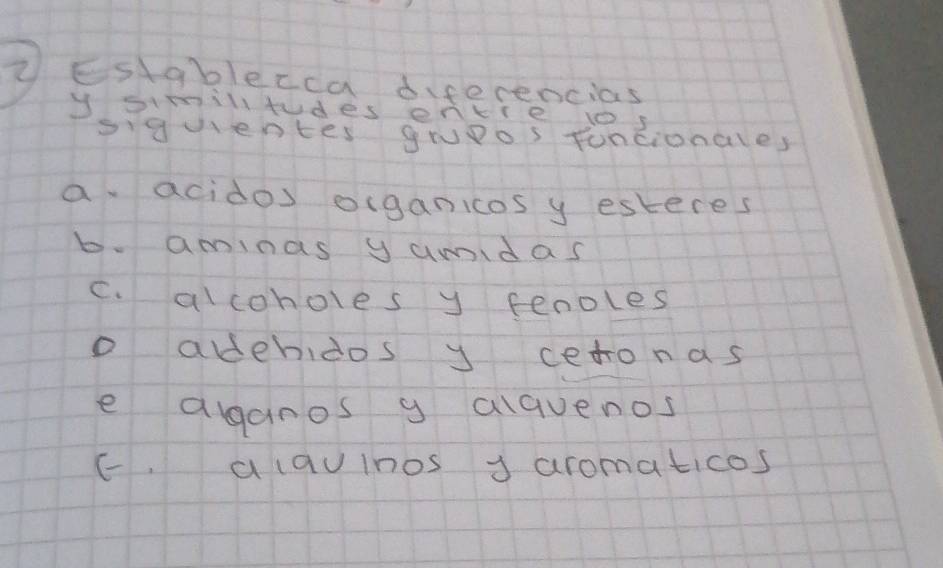 2 Establezca diferencias
y similitudes entre los
siguientes grupos funcionales
a. acidos organicos y esteres
b. aminas y amidas
c. alcoholes y fenoles
D aldehidos y cetonas
e alqanos y alquenos
F. alquinos y aromaticos